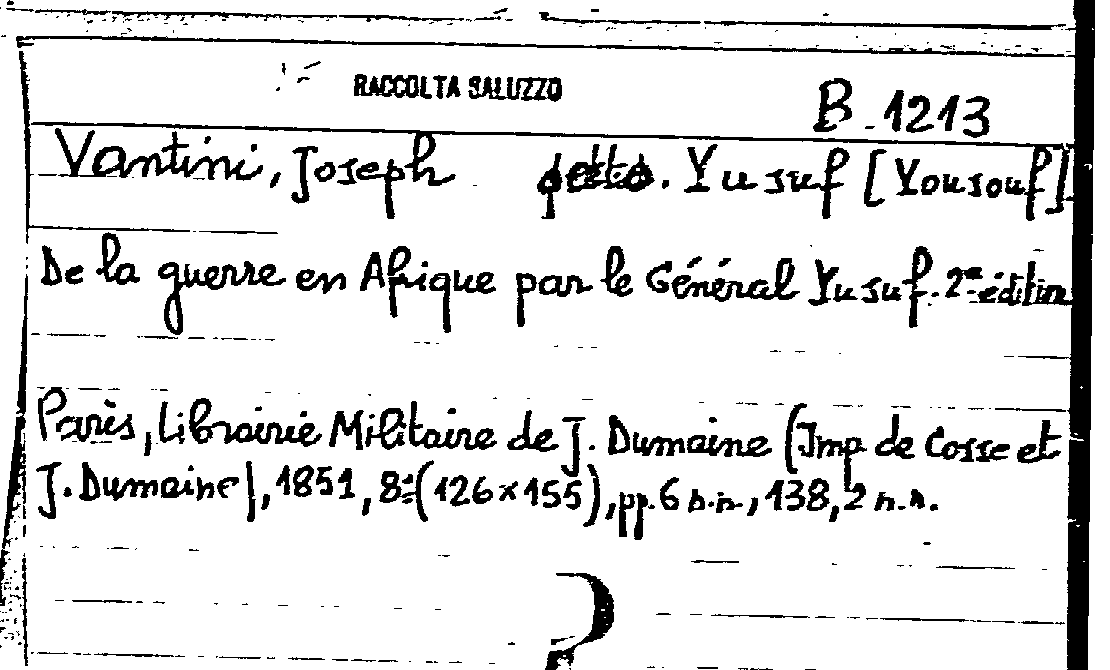 RACCOLTA SALUZZO
B. 1213
Vantini, Joseph detto. Yusuf [Yousouf]
De la guerre en Afrique par le Général Yusuf. 2e édition
Paris, Librairie Militaire de J. Dumaine (Imp. de Cosse et
J. Dumaine), 1851, 8° (126×155), pp. 6 n.n., 138, 2 n.n.